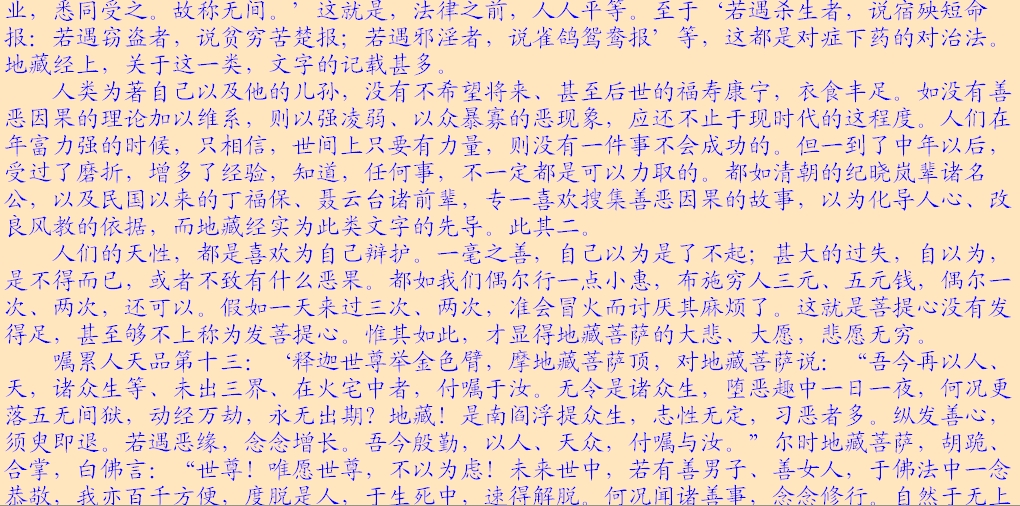 业，悉同受之。故称无间。’这就是，法律之前，人人平等。至于‘若遇杀生者，说宿殃短命
报：若遇窃盗者，说贫穷苦楚报；若遇邪淫者，说雀鸽鸳鸯报’等，这都是对症下药的对治法。
地藏经上，关于这一类，文字的记载甚多。
人类为著自己以及他的儿孙，没有不希望将来、甚至后世的福寿康宁，衣食丰足。如没有善
恶因果的理论加以维系，则以强凌弱、以众暴寡的恶现象，应还不止于现时代的这程度。人们在
年富力强的时候，只相信，世间上只要有力量，则没有一件事不会成功的。但一到了中年以后，
受过了磨折，增多了经验，知道，任何事，不一定都是可以力取的。都如清朝的纪晓岚辈诸名
公，以及民国以来的丁福保、聂云台诸前辈，专一喜欢搜集善恶因果的故事，以为化导人心、改
良风教的依据，而地藏经实为此类文字的先导。此其二。
人们的天性，都是喜欢为自己辩护。一毫之善，自己以为是了不起；甚大的过失，自以为，
是不得而已，或者不致有什么恶果。都如我们偶尔行一点小惠，布施穷人三元、五元钱，偶尔一
次、两次，还可以。假如一天来过三次、两次，准会冒火而讨厌其麻烦了。这就是菩提心没有发
得足，甚至够不上称为发菩提心。惟其如此，才显得地藏菩萨的大悲、大愿，悲愿无穷。
嘱累人天品第十三：‘释迦世尊举金色臂，摩地藏菩萨顶，对地藏菩萨说：“吾今再以人、
天，诸众生等、未出三界、在火宅中者，付嘱于汝。无令是诸众生，堕恶趣中一日一夜，何况更
落五无间狱，动经万劫，永无出期？地藏！是南阎浮提众生，志性无定，习恶者多。纵发善心，
须臾即退。若遇恶缘，念念增长。吾今殷勤，以人、天众，付嘱与汝。”尔时地藏菩萨，胡跪、
合掌，白佛言：“世尊！唯愿世尊，不以为虑！未来世中，若有善男子、善女人，于佛法中一念
恭敬，我亦百千方便，度脱是人，于生死中，速得解脱。何况闻诸善事，念念修行。自然于无上